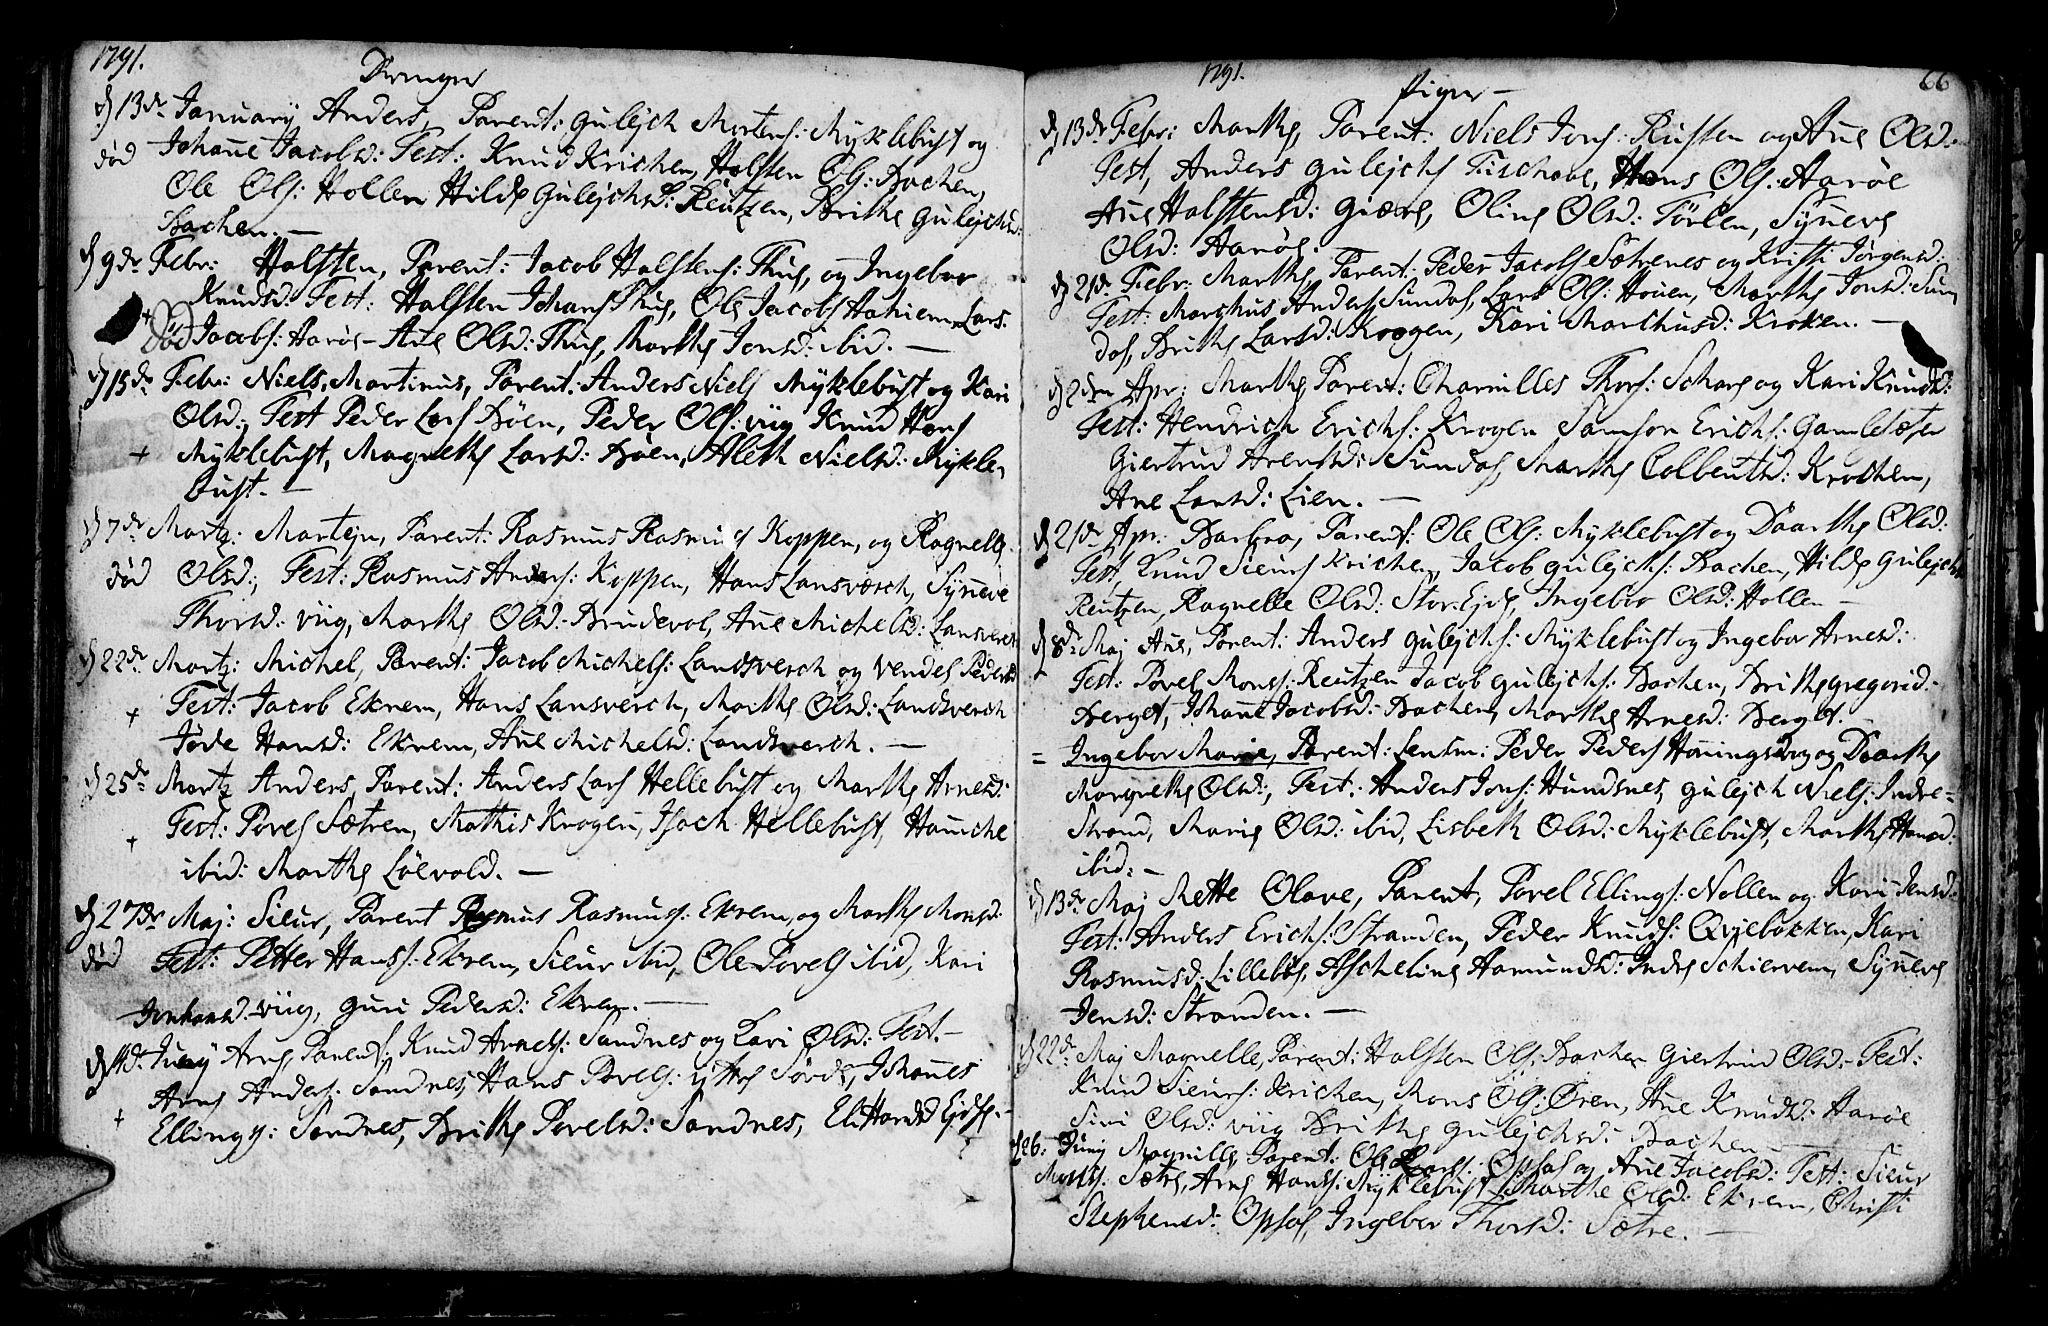 1791.
Drenger
d 13de January Anders, Parent: Gulejch Mortens: Myklebust og
død Johane Jacobsd: Test: Knud Krichen, Halsten Ols: Bachen,
Ole Ols: Hollen Hilde Gulejchsd: Reutzen, Brithe Gulejchsd:
Bachen. —
d 9de Febr: Halsten, Parent: Jacob Halstens: Thue, og Ingebor
Knudsd: Test: Halsten Johans Thue, Ole Jacobs Lars
+ død Jacobs: Harøe - Ane Olsd: Thue, Marthe Jonsd: ibid. —
d 15de Febr: Niels Martinus, Parent: Anders Niels Myklebust og Kari
Olsd: Test Peder Lars Böen, Peder Ols: viig Knud Hans
+ Myklebust, Magrethe Larsd: Böen, Aleth Nielsd: Mykle,
bust. —
d 7de Martz: Martejn, Parent: Rasmus Rasmus Koppen, og Ragnelle
død Olsd:, Test: Rasmus Anders: Koppen, Hans Lansverch, Syneve
Thorsd: viig, Marthe Olsd: Brudevol, Ane Michelsd: Lansverch
d 22de Martz: Michel, Parent: Jacob Michels: Landsverch og Vendel Pedersd
+ Test: Jacob Ekrem, Hans Lansverch, Marthe Olsd: Landsverch
Jøde Hansd: Ekrem, Ane Michelsd: Landsverch. —
d 25de Martz Anders, Parent: Anders Lars Hellebust og Marthe Arnesd:
+ Test: Povel Sætren, Mathis Krogen, Isach Hellebust, Hanche
ibid: Marthe Løevold. —
d 27de Maj: Sieur, Parent Rasmus Rasmus: Ekrem, og Marthe Monsd:
død Test: Petter Hans: Ekrem, Sieur ibid, Ole Povels ibid, Kari
viig, Guri Pedersd: Ekrem. —
d 4de Juny Arne, Parent, Knud Arnes: Sandnes og Kari Olsd: Test.
Arne Anders: Sandnes, Hans Povels: yttre Johannes
+ Ellings: Sandnes, Brithe Povelsd: Sandnes, Eli Hansd Ejde.
1791.
Piger —
66
d 13de Febr: Marthe, Parent: Niels Jons: Rusten og Ane Olsd:
Test, Anders Gulejchs Fischove, Hans Ols: Aarøe
Ane Halstensd: Giære, Oline Olsd: Tørlen, Syneve
Olsd: Harøe.
d 21de Febr: Marthe, Parent: Peder Jacobs Sætrenes og Kristi Jørgensd:
Test: Marthus Anders Sundal, Lars Ols: Houen, Marthe Jonsd: Sun
dal, Brithe Larsd: Krogen, Kari Marthusd: Kroken. —
d 2den Apr: Marthe, Parent: Charnilles Thors: Schare og Kari Knudsd:
Test: Hendrich Erichs: Krogen Samson Erichs: Gamlesæter
Giertrud Arensd: Sundal, Marthe Colbentsd: Krochen,
Ane Larsd: Lien. —
d 21de Apr: Barbra, Parent: Ole Ols: Myklebust og Daarthe Olsd:
Test, Knud Sieurs Krichen, Jacob Gulejchs: Bachen, Hilde Gulejchsd
Reutzen, Ragnelle Olsd: Stor-Ejde, Ingebor Olsd: Hollen —
d 8de Maj Ane, Parent: Anders Gulejchs: Myklebust og Ingebor Arnesd:
Test: Povel Mons: Reutzen Jacob Gulejchs: Bachen, Brithe Gregorid:
Berget, Johane Jacobsd: Bachen, Marthe Arnesd: Berget. —
= Ingebor Marie, Parent: Lensm: Peder Peders Honingsdag og Daarthe
Margrethe Olsd:, Test: Anders Jons: Hundsnes, Gulejch Niels: Indre=
Strand, Marie Olsd: ibid, Lisbeth Olsd: Myklebust, Marthe Hansd:
ibid: —
d 13de Maj Mette Olave, Parent, Povel Ellings: Nollen og Kari Jensd:
Test: Anders Erichs: Stranden, Peder Knuds: Qviebakken, Kari
Rasmusd: Lillebøe, Ascheline Hamundsd: Indre Schiervem, Syneve
Jensd: Stranden. —
d 22de Maj Magnelle, Parent: Halsten Ols: Bachen Giertrud Olsd: Test:
Knud Sieurs: Krichen, Mons Ols: Ören, Ane Knudsd: Harøe
Siri Olsd: viig Brithe Gulejchsd: Bachen —
d 26: Juny Magnille, Parent: Ole Lars: Opsal og Ane Jacobsd: Test: Sieur
Mons: Sætre, Arne Hans: Myklebust, Marthe Olsd: Ekrem, Christi
Stephensd: Opsal, Ingebor Thorsd: Sætre. —